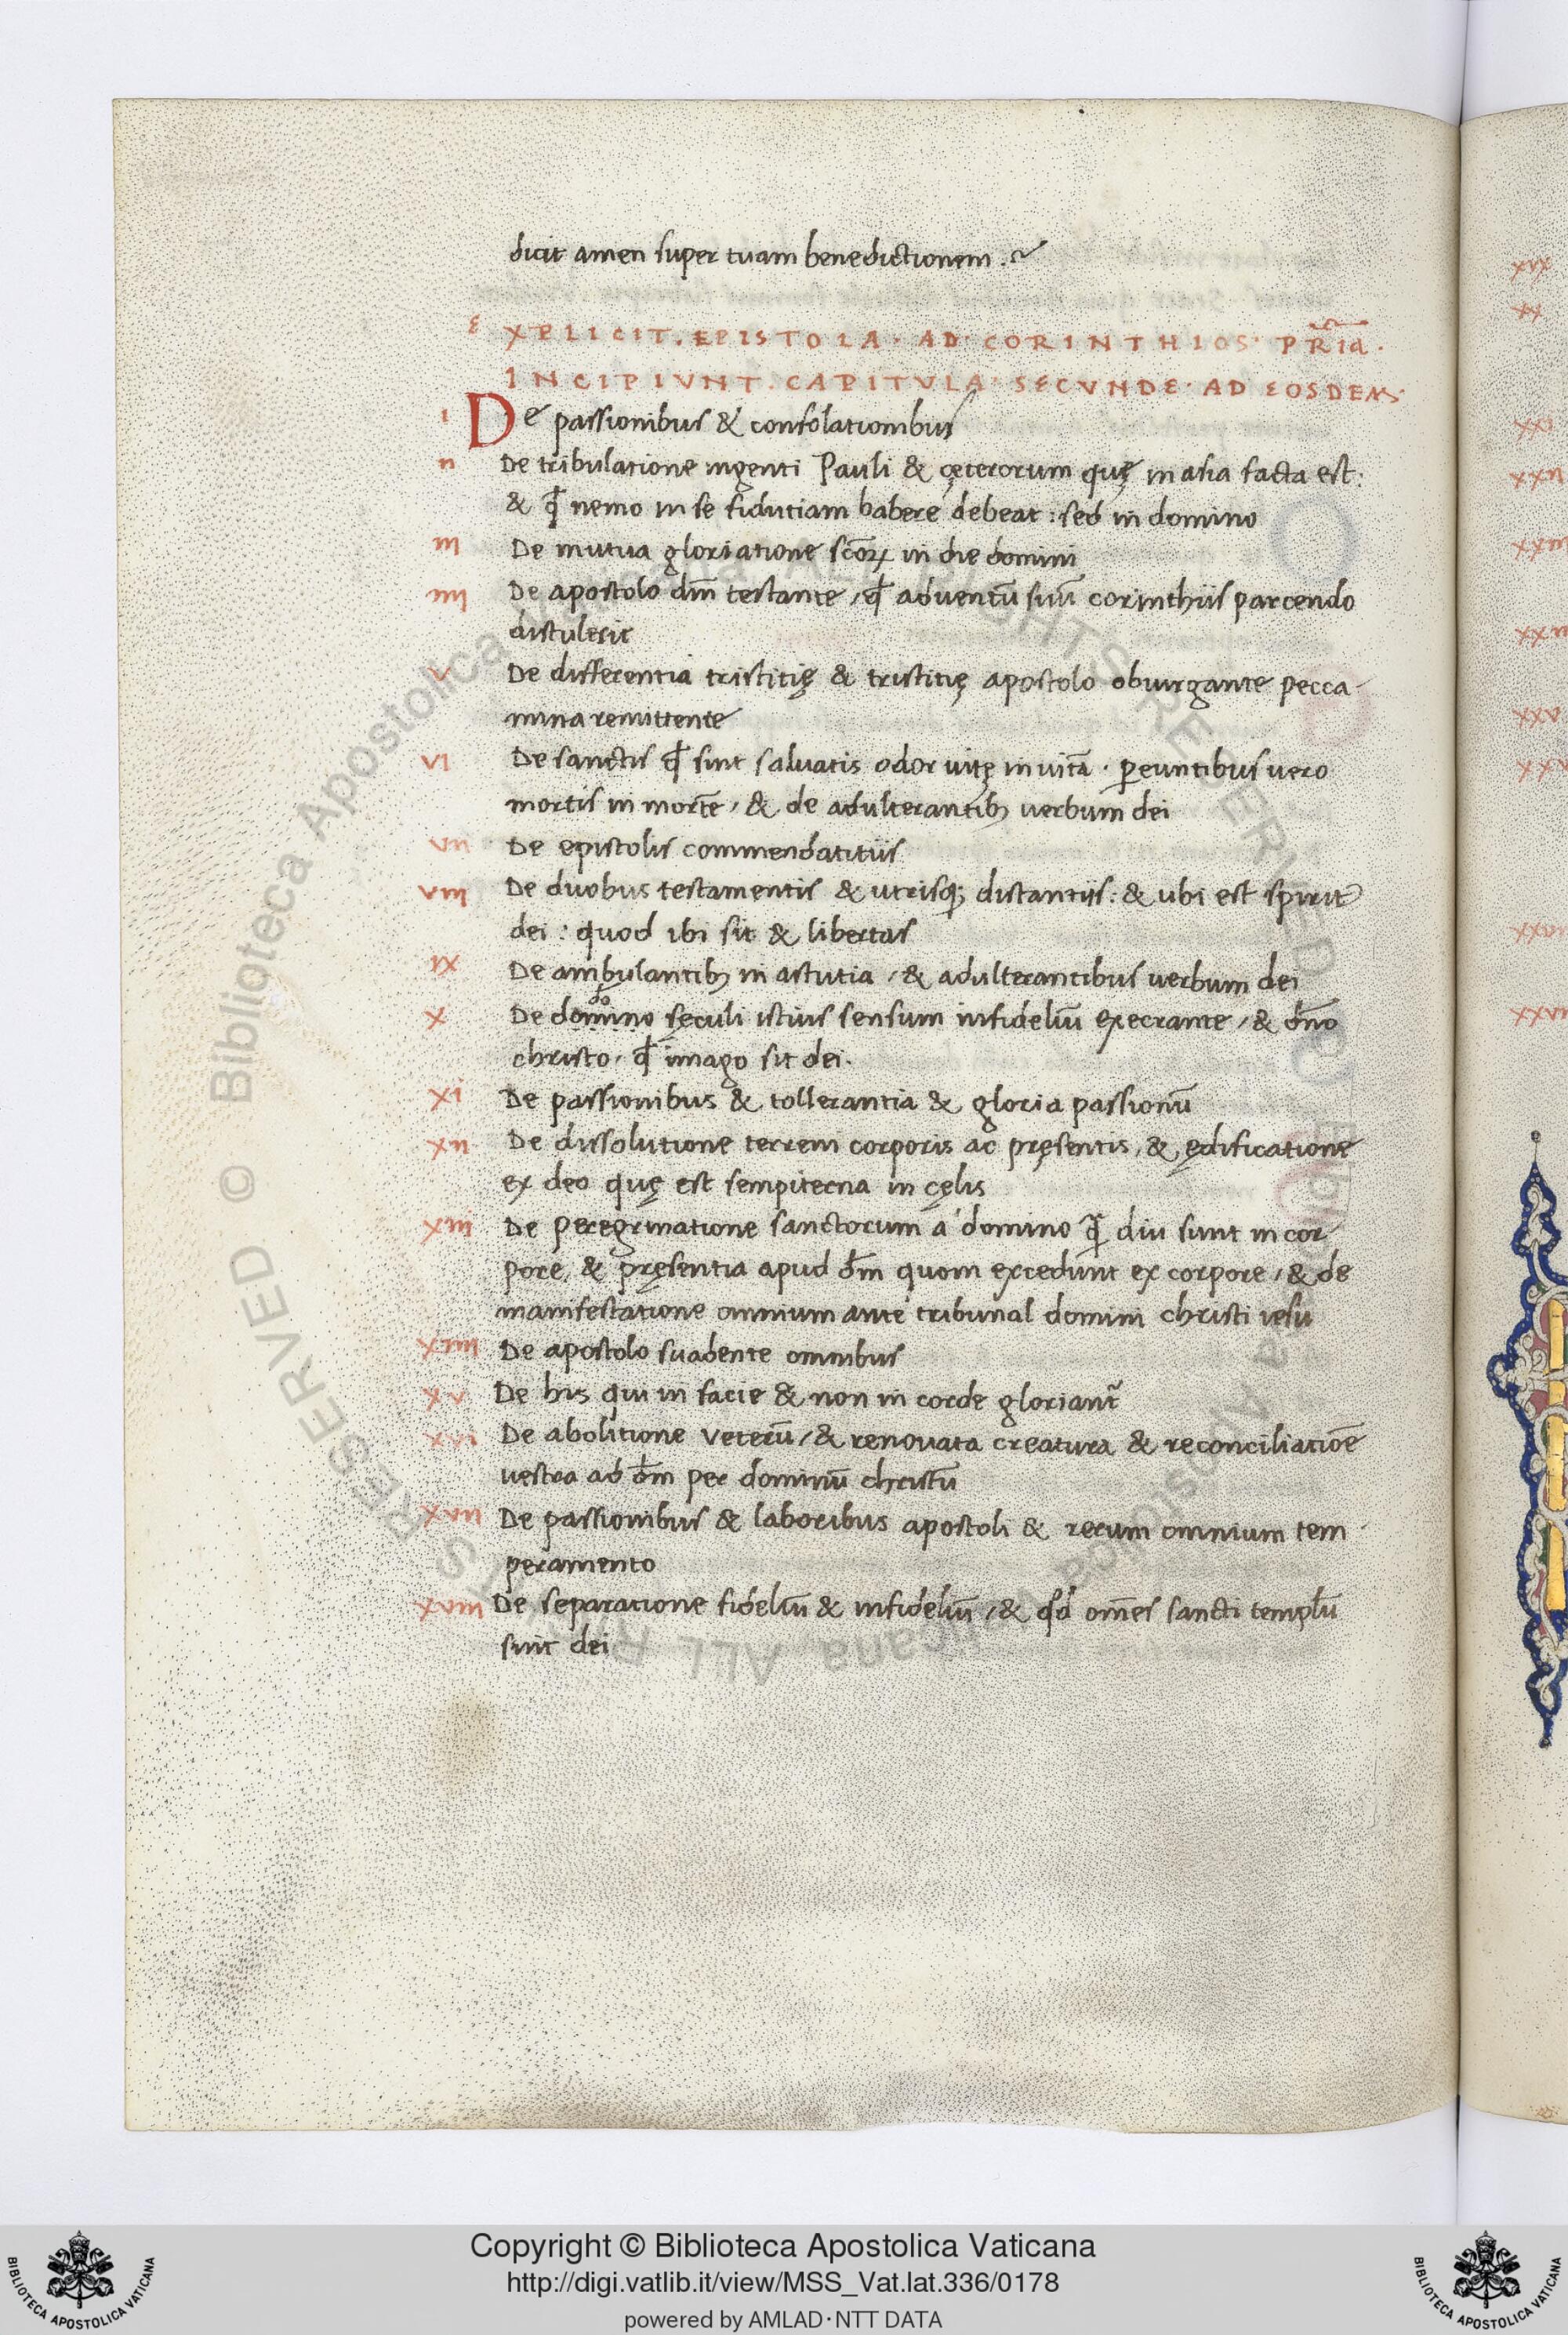 dicit amen super tuam benedictionem.
EXPLICIT. EPISTOLA. AD CORINTHIOS PR̄IA.
INCIPIVNT. CAPITVLA SECVNDE AD EOSDEM
I De passionibus & consolationibus
II De tribulatione ingenti Pauli & cęterorum quę in asia facta est:
& ꝙ nemo in se fidutiam habere debeat: sed in domino
III De mutua gloriatione sc̄oꝝ in die domini
IIII De apostolo dm̄ testante, ꝙ aduentū suū corinthiis parcendo
distulerit
V De differentia tristitię & tristitię apostolo obiurgante pecca-
mina remittente
VI De sanctis ꝙ sint saluatis odor uitę in uitā. ꝑeuntibus uero
mortis in mortē, & de adulterantibꝫ uerbum dei
VII De epistolis commendatitiis
VIII De duobus testamentis & utrisqꝫ distantiis: & ubi est spiritꝰ
dei: quod ibi sit & libertas
IX De ambulantibꝫ in astutia, & adulterantibus uerbum dei
X De domino seculi istius sensum infideliū execrante, & dn̄o
christo, ꝙ imago sit dei.
XI De passionibus & tollerantia & gloria passionū
XII De dissolutione terreni corporis ac pręsentis, & ędificatione
ex deo quę est sempiterna in cęlis
XIII De peregrinatione sanctorum a domino ꝙ diu sunt in cor-
pore, & pręsentia apud dm̄ quom excedunt ex corpore, & de
manifestatione omnium ante tribunal domini christi iesu
XIIII De apostolo suadente omnibus
XV De his qui in facie & non in corde gloriant᷑
XVI De abolitione veterū, & renouata creatura & reconciliatiōe
uestra ad dm̄ per dominū christū
XVII De passionibus & laboribus apostoli & rerum omnium tem-
peramento
XVIII De separatione fideliū & infideliū, & qd̄ om̄es sancti templū
sint dei
XIX
XX
Copyright © Biblioteca Apostolica Vaticana
http://digi.vatlib.it/view/MSS_Vat.lat.336/0178
powered by AMLAD·NTT DATA
BIBLIOTECA APOSTOLICA VATICANA
BIBLIOTECA APOSTOLICA VATICANA